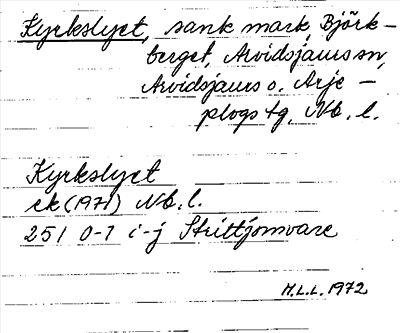 Kyrkslyet, sank mark, Björk-
berget, Arvidsjaurs sn,
Arvidsjaurs o. Arje-
plogs tg, Nb. l.
Kyrkslyet
ek (1971) Nb. l.
25 I 0-1 i-j Strittjomvare
M.L.L. 1972